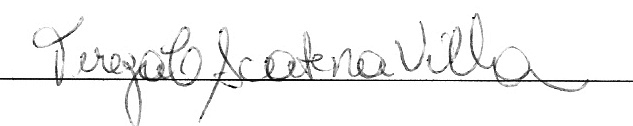 Tereza C Scatena Villa